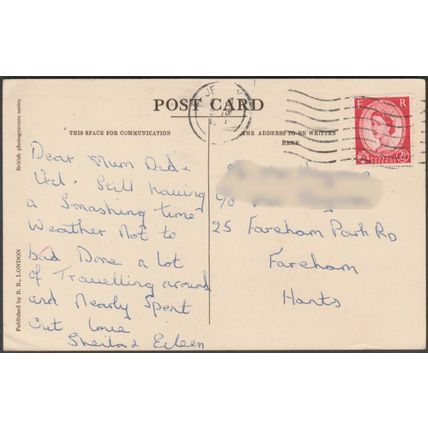 POST CARD
THIS SPACE FOR COMMUNICATION
THE ADDRESS TO BE WRITTEN
HERE
E R
Dear Mum Dad &
Still having
a Smashing time
Weather Not to
bad Done a lot
of Travelling around
and Nearly Spent
Out love
Sheila & Eileen
c/o
25 Fareham Park Rd
Fareham
Hants
British photogravure series
Published by B. R., LONDON